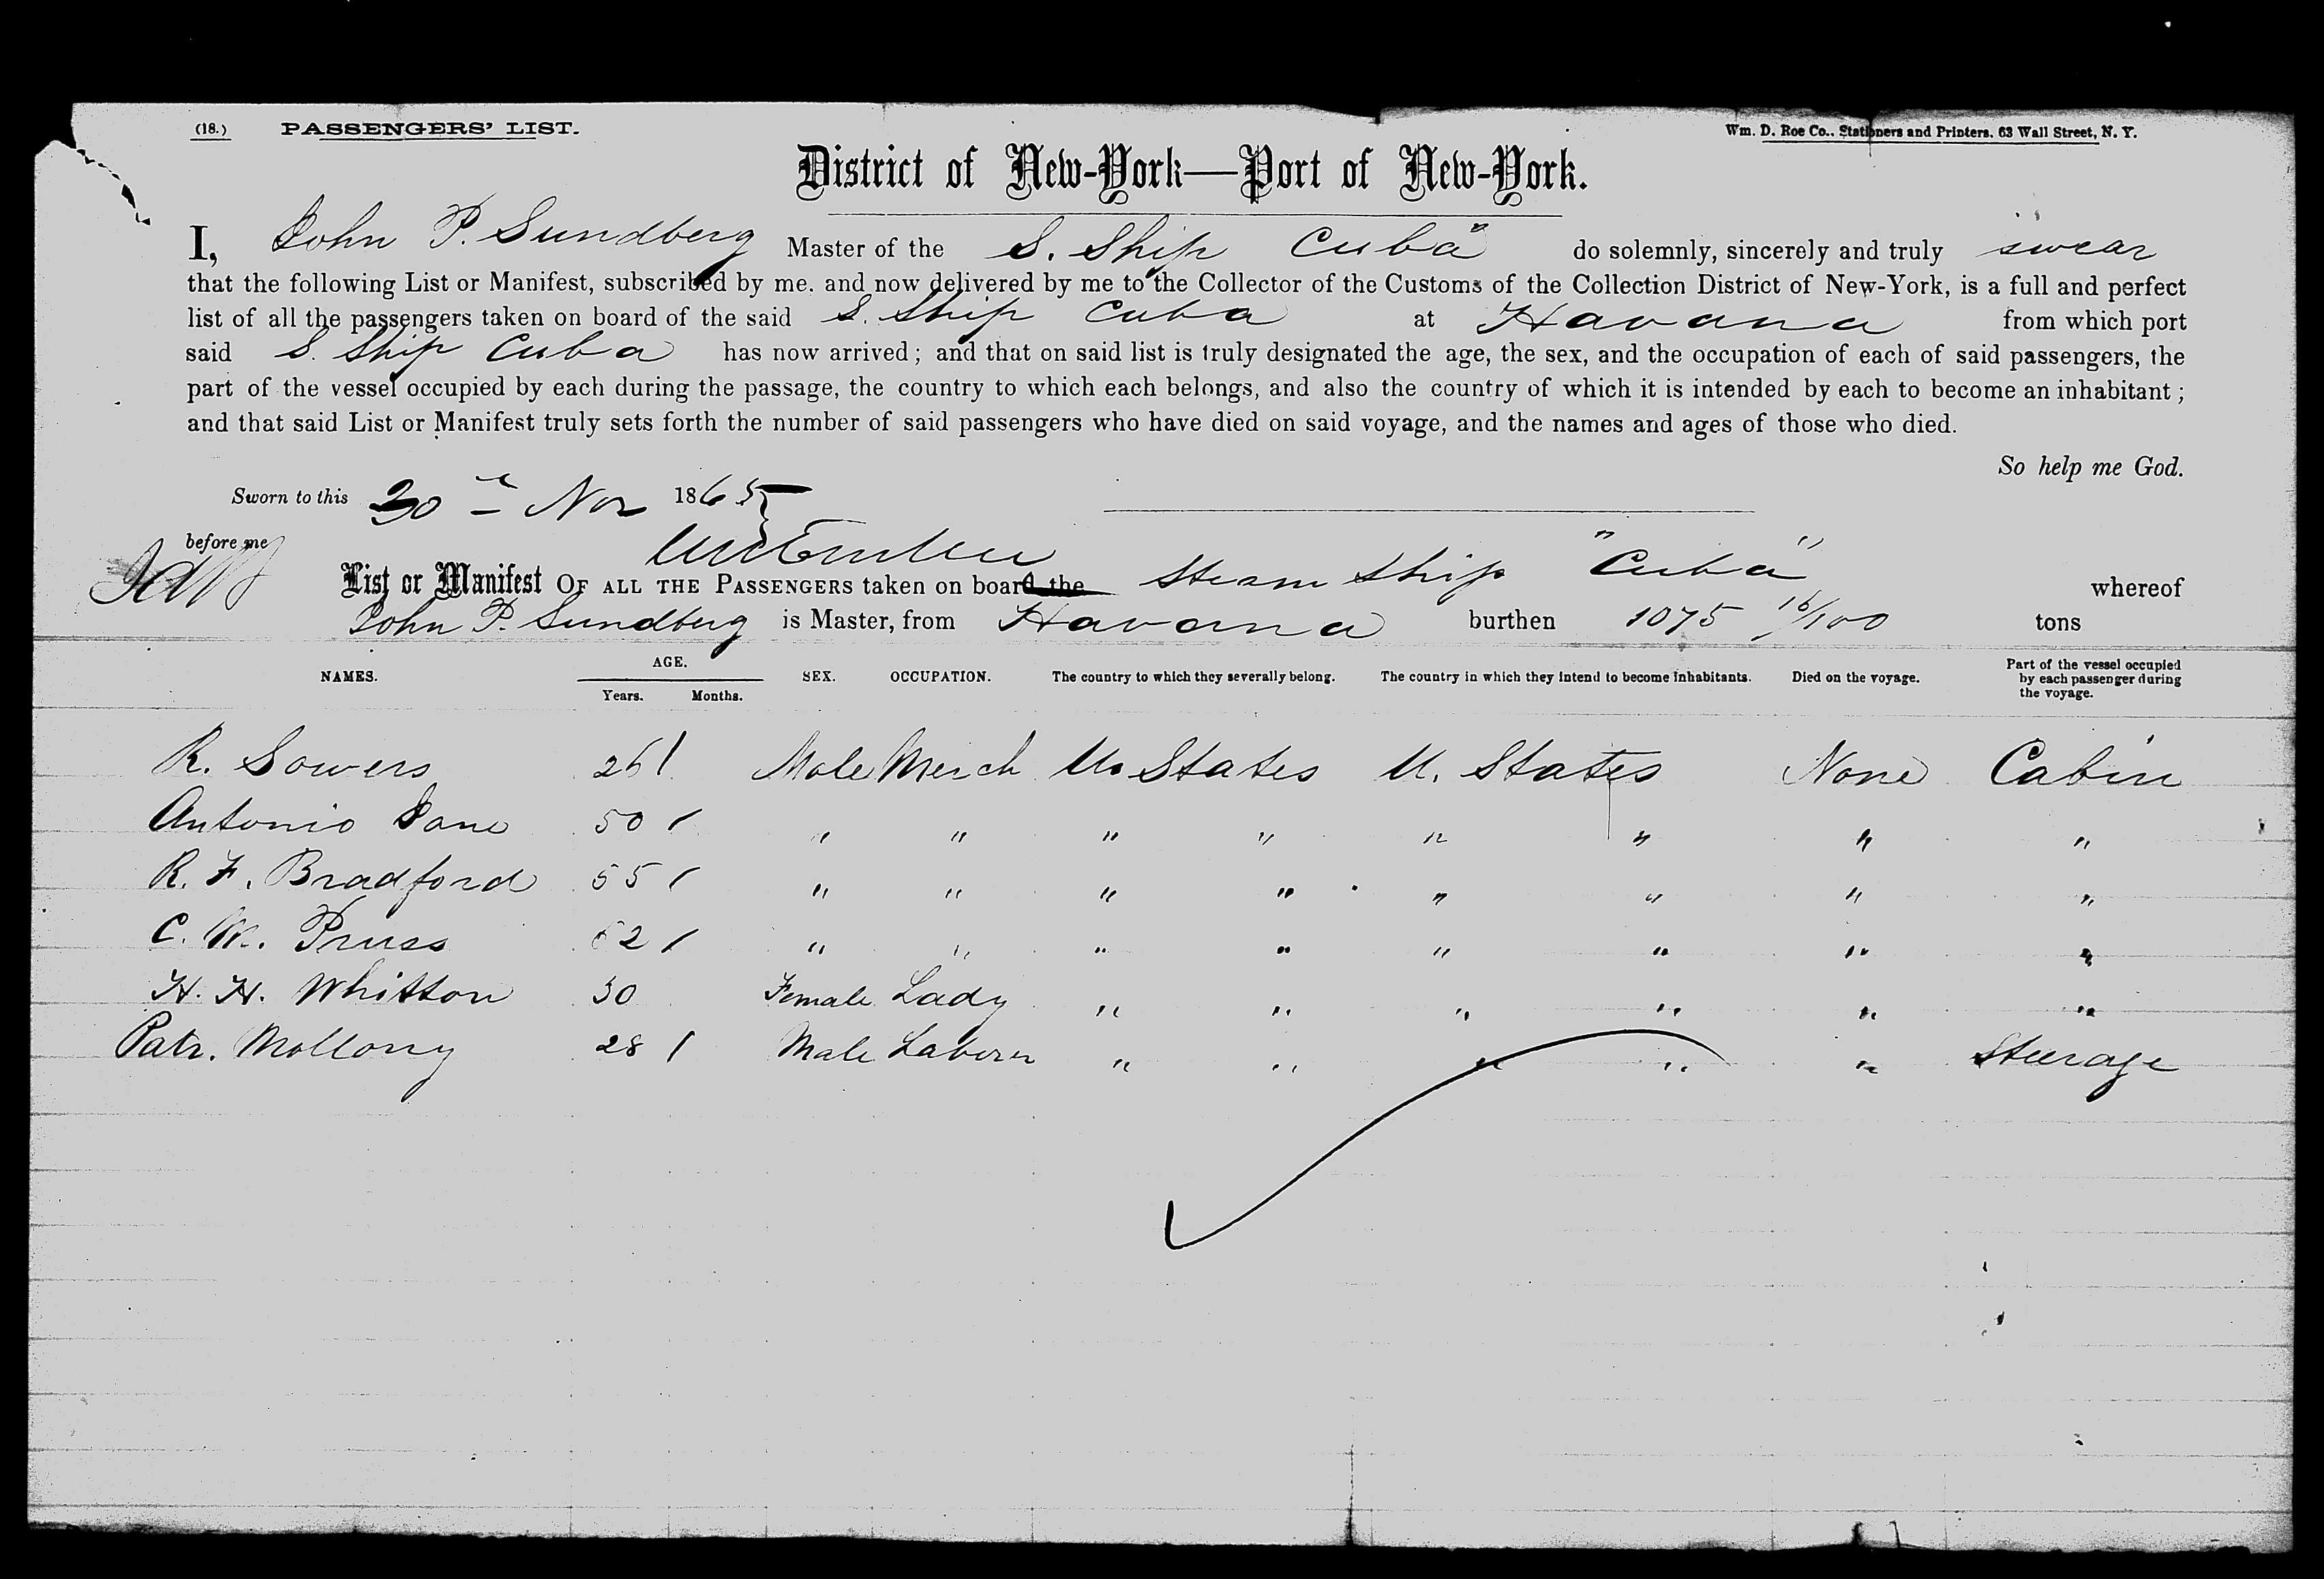 (18.) PASSENGERS' LIST. Wm. D. Roe Co.. Stationers and Printers. 63 Wall Street, N. Y.
District of New-York—Port of New-York.
I, John P. Sundberg Master of the S. Ship Cuba" do solemnly, sincerely and truly swear
that the following List or Manifest, subscribed by me. and now delivered by me to the Collector of the Customs of the Collection District of New-York, is a full and perfect
list of all the passengers taken on board of the said S. Ship Cuba at Havana from which port
said S. Ship Cuba has now arrived; and that on said list is truly designated the age, the sex, and the occupation of each of said passengers, the
part of the vessel occupied by each during the passage, the country to which each belongs, and also the country of which it is intended by each to become an inhabitant;
and that said List or Manifest truly sets forth the number of said passengers who have died on said voyage, and the names and ages of those who died.
So help me God.
Sworn to this Nov 1865
before me
List or Manifest OF ALL THE PASSENGERS taken on board the Steam Ship "Cuba" whereof
John P. Sundberg is Master, from Havana burthen 1075 16/100 tons
NAMES. AGE. Years. Months. SEX. OCCUPATION. The country to which they severally belong. The country in which they intend to become inhabitants. Died on the voyage. Part of the vessel occupied by each passenger during the voyage.
R. Sowers 26 / Male Merch U. States U. States None Cabin
Antonio 50 / " " " " " " " "
R. F. Bradford 55 / " " " " " " " "
C. M. Pruss 62 / " " " " " " " "
H. H. Whitton 30 Female Lady " " " " " "
Patr. Mollony 28 / Male Laborer " " " " " Steerage